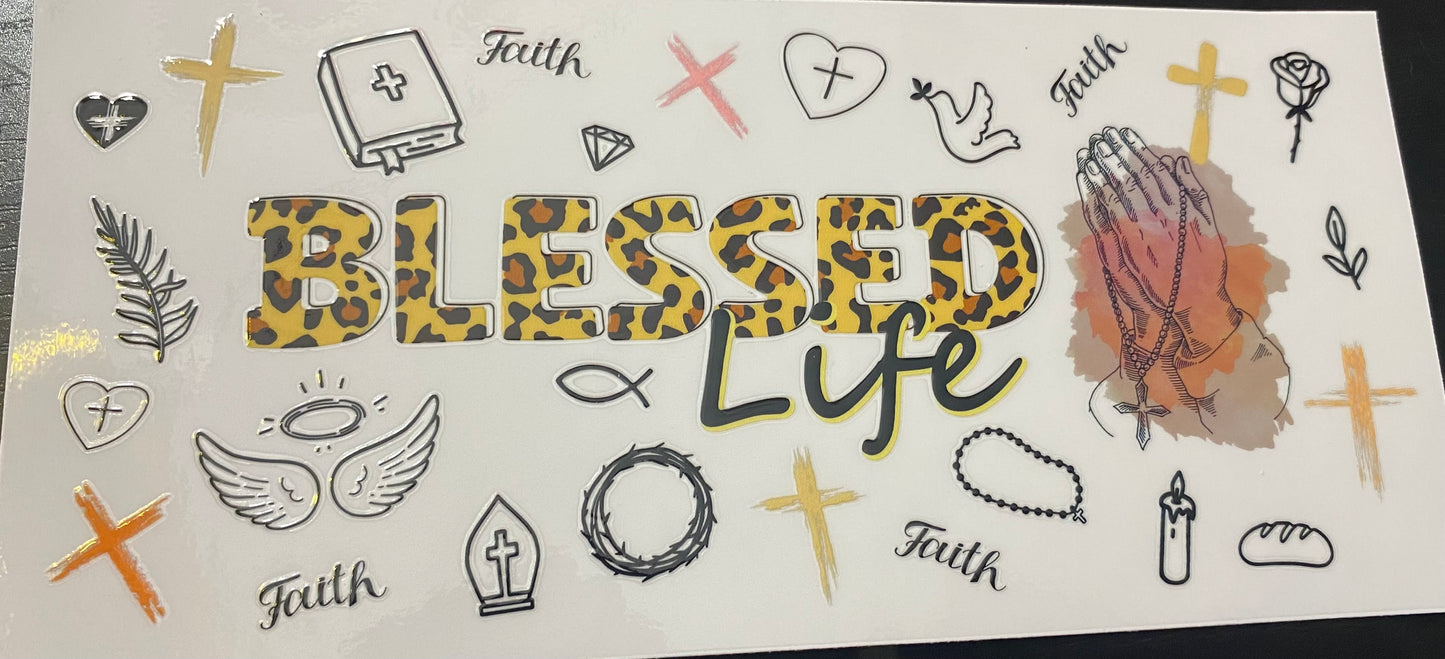 Faith
Faith
BLESSED
Life
Faith
Faith